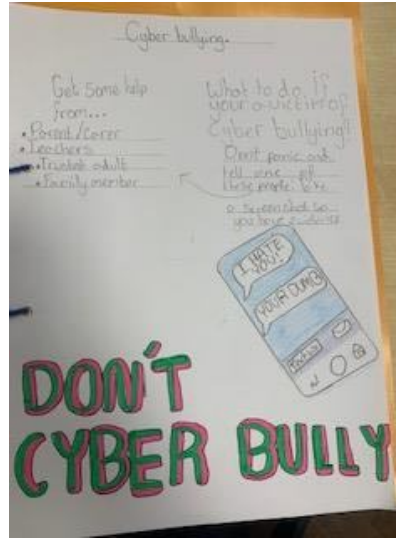 Cyber bullying.
Get Some help
from...
• Parent/Carer
• Teachers
• Trusted adult
• Family member
What to do if
your a victim of
Cyber bullying?
Don't panic and
tell one of
these people. Take
a screenshot so
you have evidence
I HATE
YOU!
YOUR DUMB
DON'T
CYBER BULLY